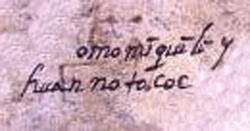 omomiquili y
huan notococ